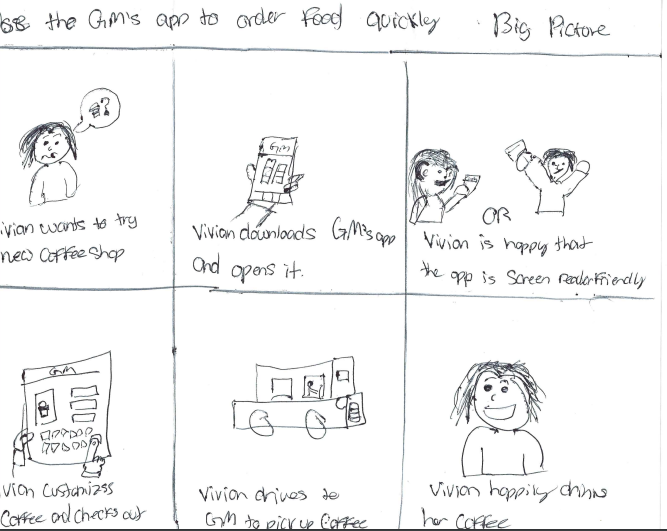 the GM's app to order food quickly Big Picture
?
GM
OR
Vivian wants to try
new Coffee shop
Vivian downloads GM's app
and opens it.
Vivian is happy that
the app is Screen reader friendly
GM
Vivian customizes
Coffee and checks out
Vivian drives to
GM to pick up Coffee
Vivian happily drinks
her Coffee